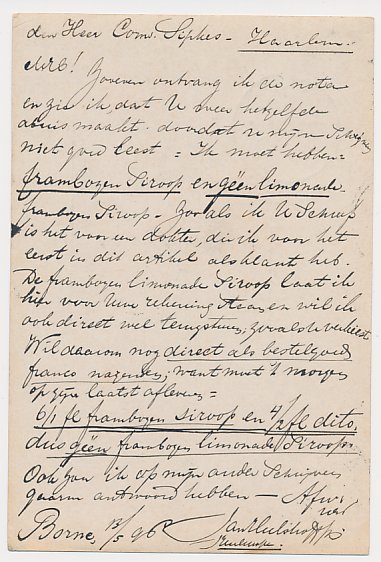 den Heer Corn. Sipkes - Haarlem.
Zooeven ontvang ik de nota
en zie ik, dat U weer hetzelfde
abuis maakt. doordat U mijn Schrijven
niet goed leest = Ik moet hebben =
frambozen Siroop en géén limonade
frambozen Siroop - Zooals ik U Schreef
is het voor een dokter, die ik voor het
eerst in dit artikel als klant heb.
De frambozen limonade Siroop laat ik
hier voor Uwe rekening staan en wil ik
ook direct wel terugsturen, zooals U verkiest
Wil daarom nog direct als bestelgoed
franco nazenden, want moet 't morgen
op zijn laatst afleveren =
6/1 fl frambozen Siroop en 4/2 fl dito,
dus géén frambozen limonade Siroop
Ook zou ik op mijn ander Schrijven
gaarne antwoord hebben -
Borne, 13/5 96